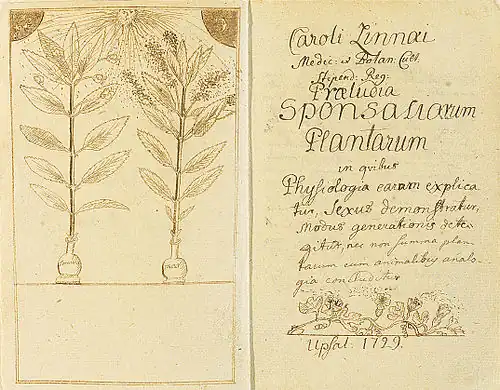 Caroli Linnæi
Medic: et Botan: Cult.
Stipend: Reg:
Præludia
Sponsaliarum
Plantarum
in qvibus
Physiologia earum explica
tur, Sexus demonstratur,
Modus generationis dete-
gitur, nec non summa plan-
tarum cum animalibus analo-
gia concluditur
Upsal. 1729.